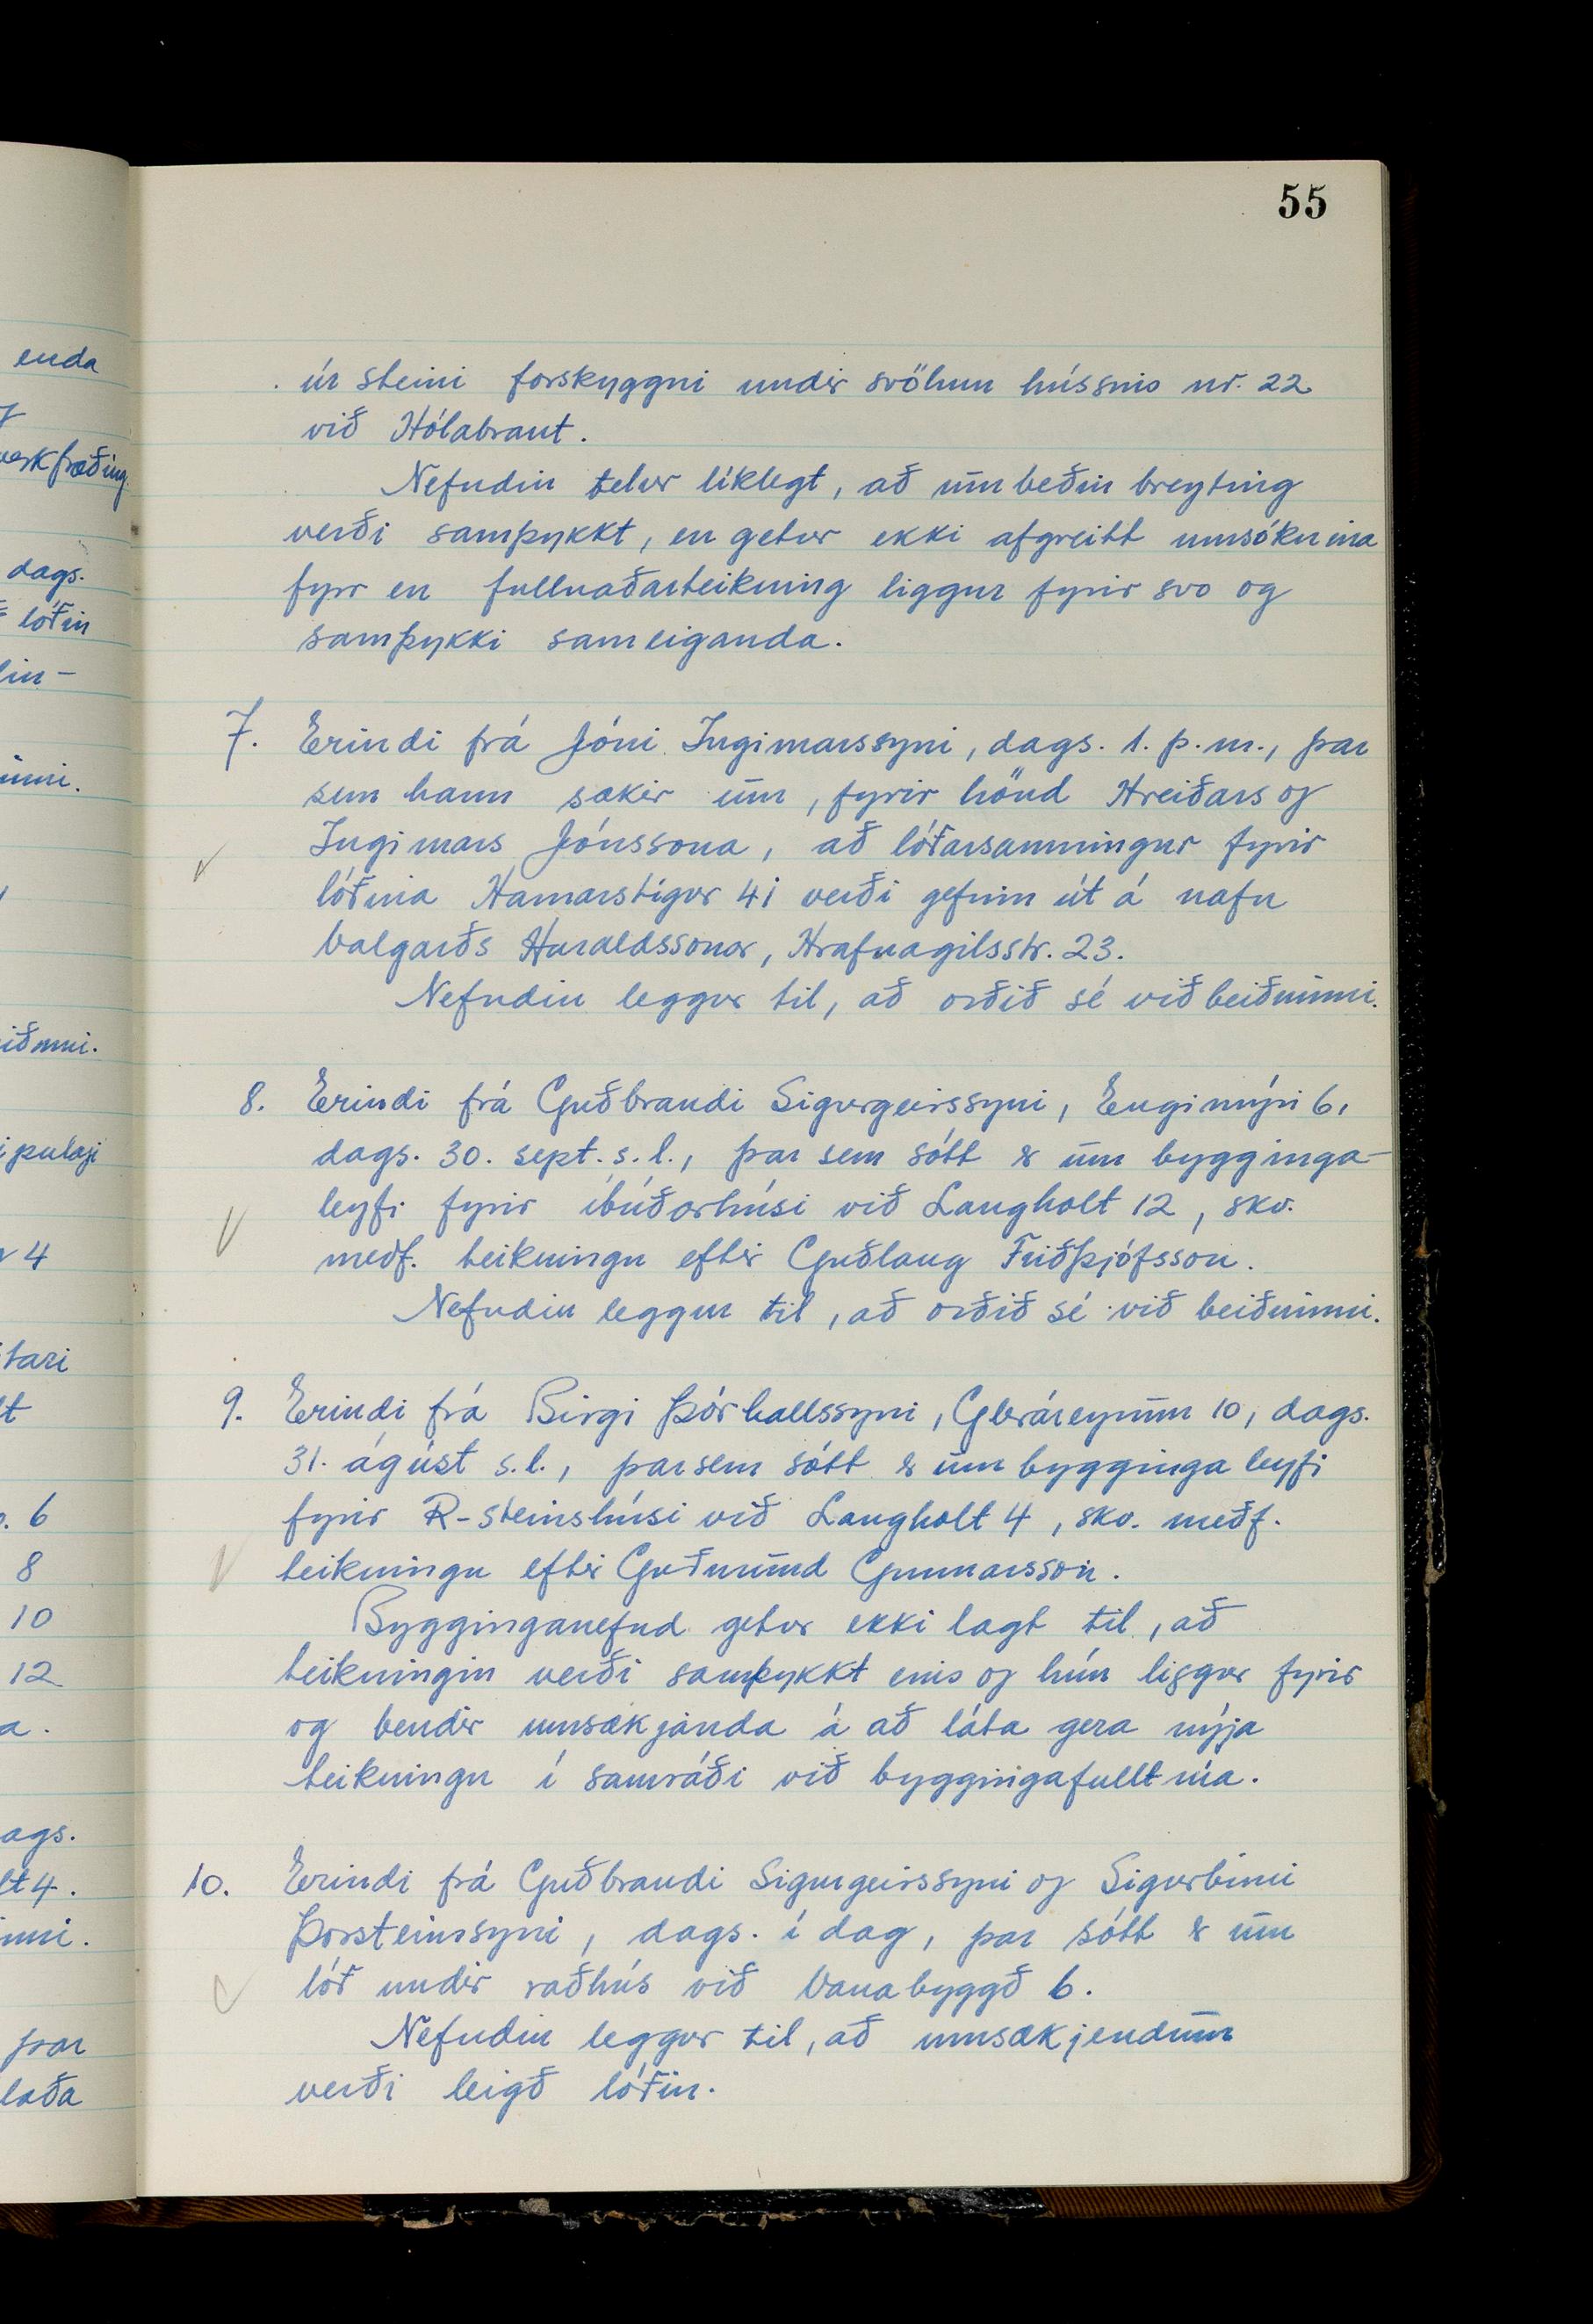 55
enda
dags.
lóðin
4
tari
6
8
10
12
þar
úr steini forskyggni undir svölum hússins nr. 22
við Hólabraut.
Nefndin telur líklegt, að umbeðin breyting
verði samþykkt, en getur ekki afgreitt umsóknina
fyrr en fullnaðarteikning liggur fyrir svo og
samþykki sameiganda.
7. Erindi frá Jóni Ingimarssyni, dags. 1. þ.m., þar
sem hann sækir um, fyrir hönd Hreiðars og
Ingimars Jónssona, að lóðarsamningur fyrir
lóðina Hamarstígur 41 verði gefinn út á nafn
Valgarðs Haraldssonar, Hrafnagilsstr. 23.
Nefndin leggur til, að orðið sé við beiðninni.
8. Erindi frá Guðbrandi Sigurgeirssyni, Engimýri 6,
dags. 30. sept. s.l., þar sem sótt er um bygginga-
leyfi fyrir íbúðarhúsi við Langholt 12, skv.
meðf. teikningu eftir Guðlaug Friðþjófsson.
Nefndin leggur til, að orðið sé við beiðninni.
9. Erindi frá Birgi Þórhallssyni, Gleráreyrum 10, dags.
31. ágúst s.l., þar sem sótt er um byggingaleyfi
fyrir R-steinshúsi við Langholt 4, skv. meðf.
teikningu eftir Guðmund Gunnarsson.
Bygginganefnd getur ekki lagt til, að
teikningin verði samþykkt eins og hún liggur fyrir
og bendir umsækjanda á að láta gera nýja
teikningu í samráði við byggingafulltrúa.
10. Erindi frá Guðbrandi Sigurgeirssyni og Sigurbirni
Þorsteinssyni, dags. í dag, þar sótt er um
lóð undir raðhús við Vanabyggð 6.
Nefndin leggur til, að umsækjendum
verði leigð lóðin.